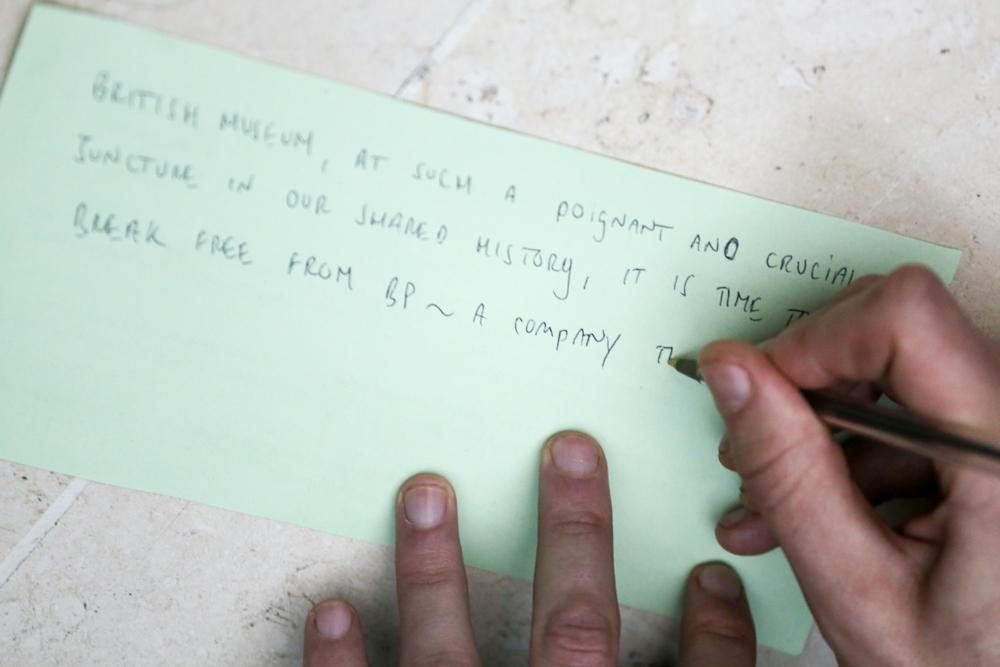 BRITISH MUSEUM, AT SUCH A POIGNANT AND CRUCIAL
JUNCTURE IN OUR SHARED HISTORY, IT IS TIME
BREAK FREE FROM BP ~ A COMPANY